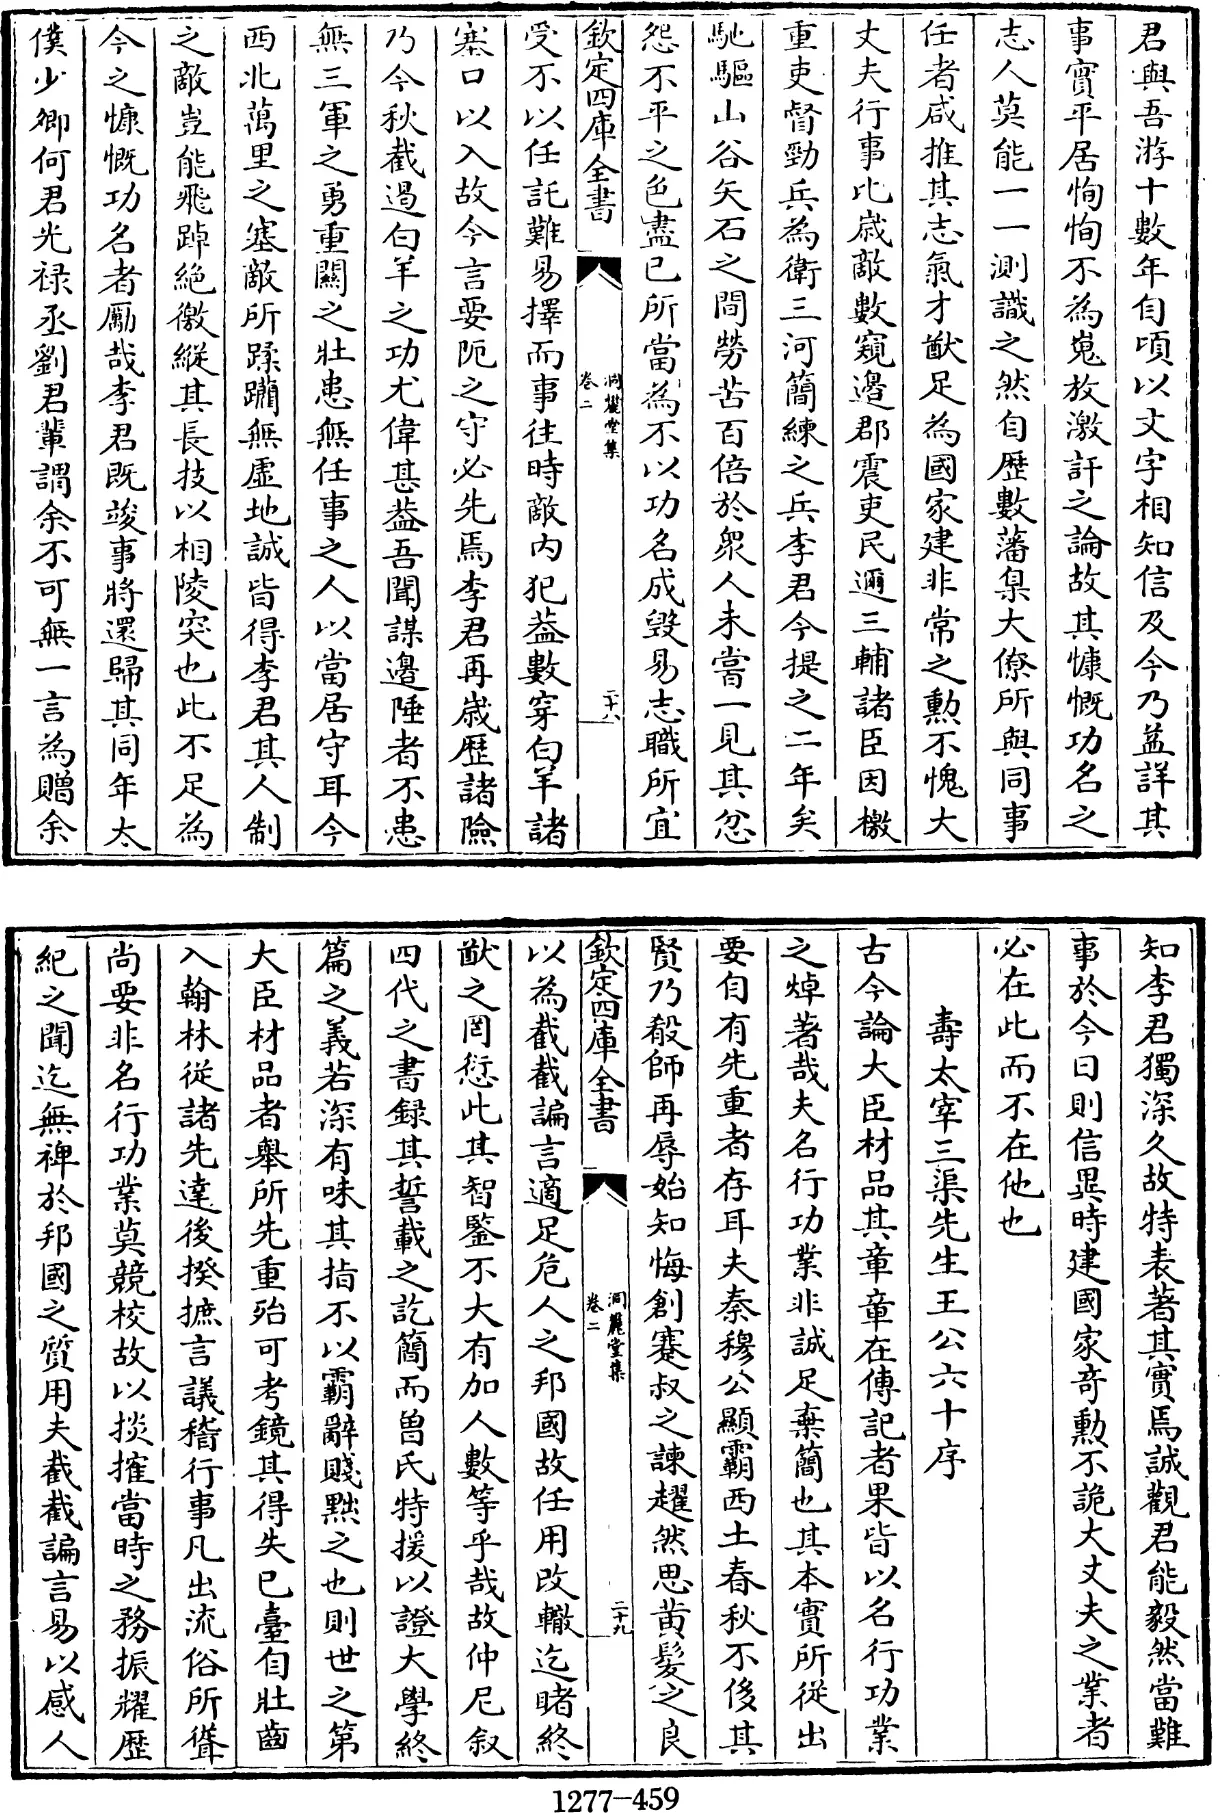 君與吾游十數年自頃以文字相知信及今乃益詳其
事實平居恂恂不為嵬放激訐之論故其慷慨功名之
志人莫能一一測識之然自歷數藩臬大僚所與同事
任者咸推其志氣才猷足為國家建非常之勲不愧大
丈夫行事比歲敵數窺邊郡震吏民邇三輔諸臣因檄
重吏督勁兵為衛三河簡練之兵李君今提之二年矣
馳驅山谷矢石之間勞苦百倍於衆人未嘗一見其忿
怨不平之色盡已所當為不以功名成毀易志職所宜
欽定四庫全書
洞麓堂集
卷二
二十八
受不以任託難易擇而事往時敵内犯葢數穿白羊諸
塞口以入故今言要阨之守必先焉李君再歲歷諸險
乃今秋截過白羊之功尤偉甚葢吾聞謀邊陲者不患
無三軍之勇重關之壯患無任事之人以當居守耳今
西北萬里之塞敵所蹂躪無虛地誠皆得李君其人制
之敵豈能飛踔絶徼縱其長技以相陵突也此不足為
今之慷慨功名者勵哉李君既竣事將還歸其同年太
僕少卿何君光禄丞劉君輩謂余不可無一言為贈余
知李君獨深久故特表著其實焉誠觀君能毅然當難
事於今日則信異時建國家奇勲不詭大丈夫之業者
必在此而不在他也
壽太宰三渠先生王公六十序
古今論大臣材品其章章在傳記者果皆以名行功業
之焯著哉夫名行功業非誠足棄簡也其本實所從出
要自有先重者存耳夫秦穆公顯霸西土春秋不後其
賢乃殽師再辱始知悔創蹇叔之諫趯然思黄髪之良
欽定四庫全書
洞麓堂集
卷二
二十九
以為截截諞言適足危人之邦國故任用改轍迄睹終
猷之罔愆此其智鑒不大有加人數等乎哉故仲尼叙
四代之書録其誓載之訖簡而曾氏特援以證大學終
篇之義若深有味其指不以霸辭賤黜之也則世之第
大臣材品者舉所先重殆可考鏡其得失已臺自壯齒
入翰林從諸先達後揆摭言議稽行事凡出流俗所聳
尚要非名行功業莫競校故以掞搉當時之務振耀歷
紀之聞迄無裨於邦國之質用夫截截諞言易以感人
1277—459